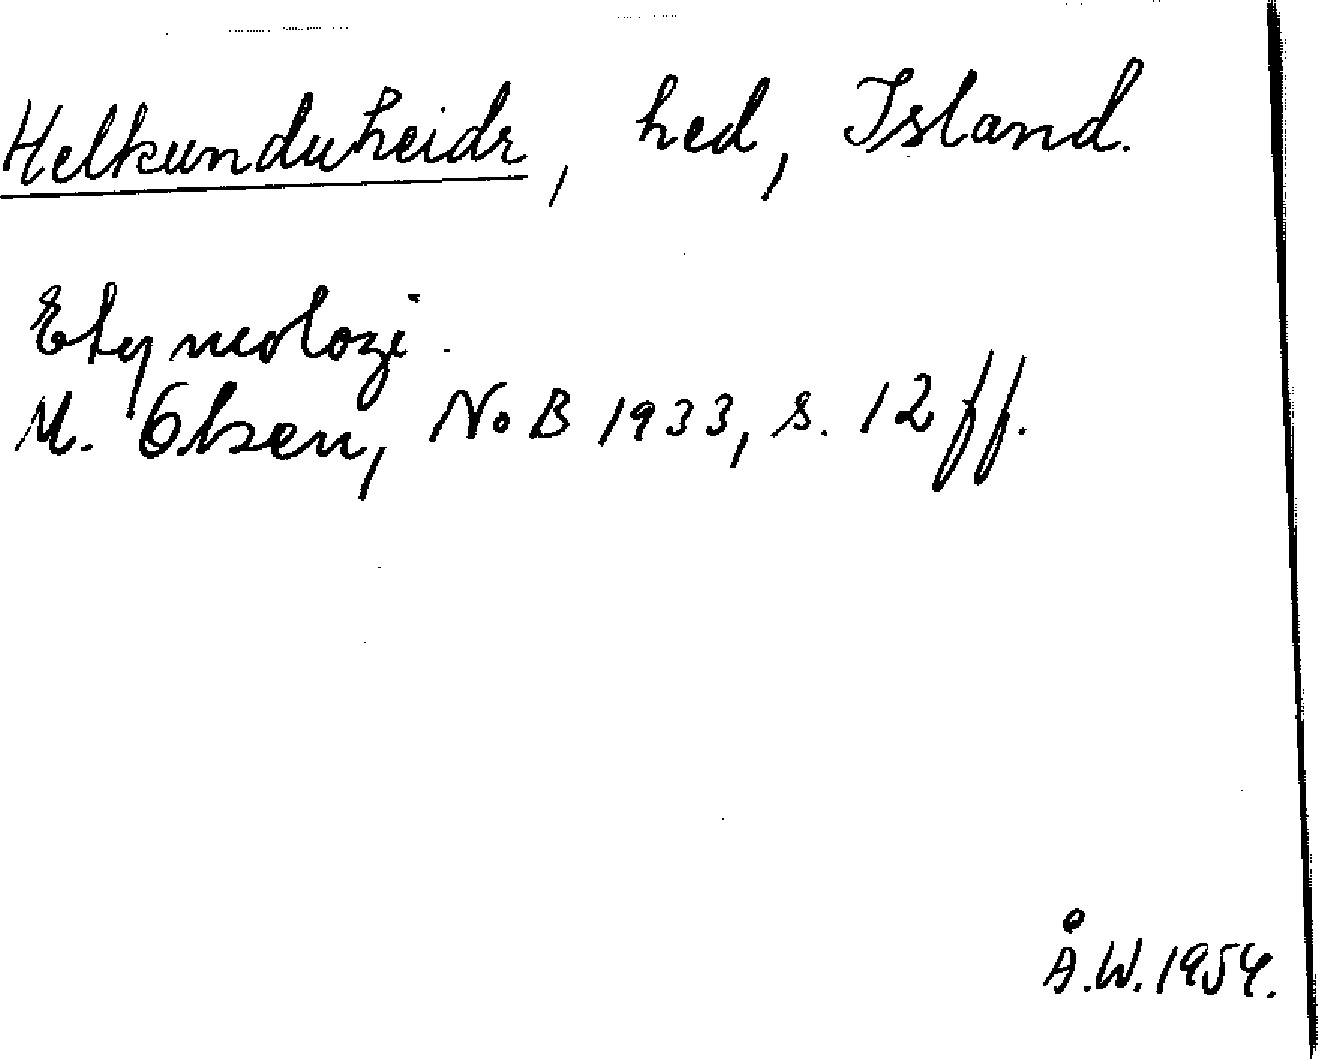 Helkunduheidr, hed, Island.
Etymologi.
M. Olsen, NoB 1933, s. 12 ff.
Å.W. 1954.